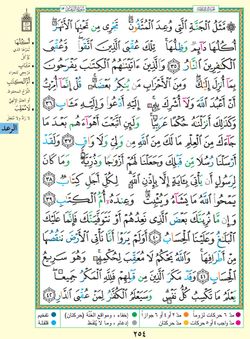 ۞ مَّثَلُ ٱلْجَنَّةِ ٱلَّتِى وُعِدَ ٱلْمُتَّقُونَ تَجْرِى مِن تَحْتِهَا ٱلْأَنْهَٰرُ
أُكُلُهَا دَآئِمٌ وَظِلُّهَا تِلْكَ عُقْبَى ٱلَّذِينَ ٱتَّقَوا۟ وَّعُقْبَى
ٱلْكَٰفِرِينَ ٱلنَّارُ ٣٥ وَٱلَّذِينَ ءَاتَيْنَٰهُمُ ٱلْكِتَٰبَ يَفْرَحُونَ
بِمَآ أُنزِلَ إِلَيْكَ وَمِنَ ٱلْأَحْزَابِ مَن يُنكِرُ بَعْضَهُۥ قُلْ إِنَّمَآ أُمِرْتُ
أَنْ أَعْبُدَ ٱللَّهَ وَلَآ أُشْرِكَ بِهِۦٓ إِلَيْهِ أَدْعُوا۟ وَإِلَيْهِ مَـَٔابِ ٣٦
وَكَذَٰلِكَ أَنزَلْنَٰهُ حُكْمًا عَرَبِيًّا وَلَئِنِ ٱتَّبَعْتَ أَهْوَآءَهُم بَعْدَ مَا
جَآءَكَ مِنَ ٱلْعِلْمِ مَا لَكَ مِنَ ٱللَّهِ مِن وَلِىٍّ وَلَا وَاقٍ ٣٧ وَلَقَدْ
أَرْسَلْنَا رُسُلًا مِّن قَبْلِكَ وَجَعَلْنَا لَهُمْ أَزْوَٰجًا وَذُرِّيَّةً وَمَا كَانَ
لِرَسُولٍ أَن يَأْتِىَ بِـَٔايَةٍ إِلَّا بِإِذْنِ ٱللَّهِ لِكُلِّ أَجَلٍ كِتَابٌ ٣٨
يَمْحُوا۟ ٱللَّهُ مَا يَشَآءُ وَيُثْبِتُ وَعِندَهُۥٓ أُمُّ ٱلْكِتَٰبِ ٣٩
وَإِن مَّا نُرِيَنَّكَ بَعْضَ ٱلَّذِى نَعِدُهُمْ أَوْ نَتَوَفَّيَنَّكَ فَإِنَّمَا
عَلَيْكَ ٱلْبَلَٰغُ وَعَلَيْنَا ٱلْحِسَابُ ٤٠ أَوَلَمْ يَرَوْا۟ أَنَّا نَأْتِى ٱلْأَرْضَ نَنقُصُهَا
مِنْ أَطْرَافِهَا وَٱللَّهُ يَحْكُمُ لَا مُعَقِّبَ لِحُكْمِهِۦ وَهُوَ سَرِيعُ
ٱلْحِسَابِ ٤١ وَقَدْ مَكَرَ ٱلَّذِينَ مِن قَبْلِهِمْ فَلِلَّهِ ٱلْمَكْرُ جَمِيعًا
يَعْلَمُ مَا تَكْسِبُ كُلُّ نَفْسٍ وَسَيَعْلَمُ ٱلْكُفَّٰرُ لِمَنْ عُقْبَى ٱلدَّارِ ٤٢
الرعد
٢٥٤